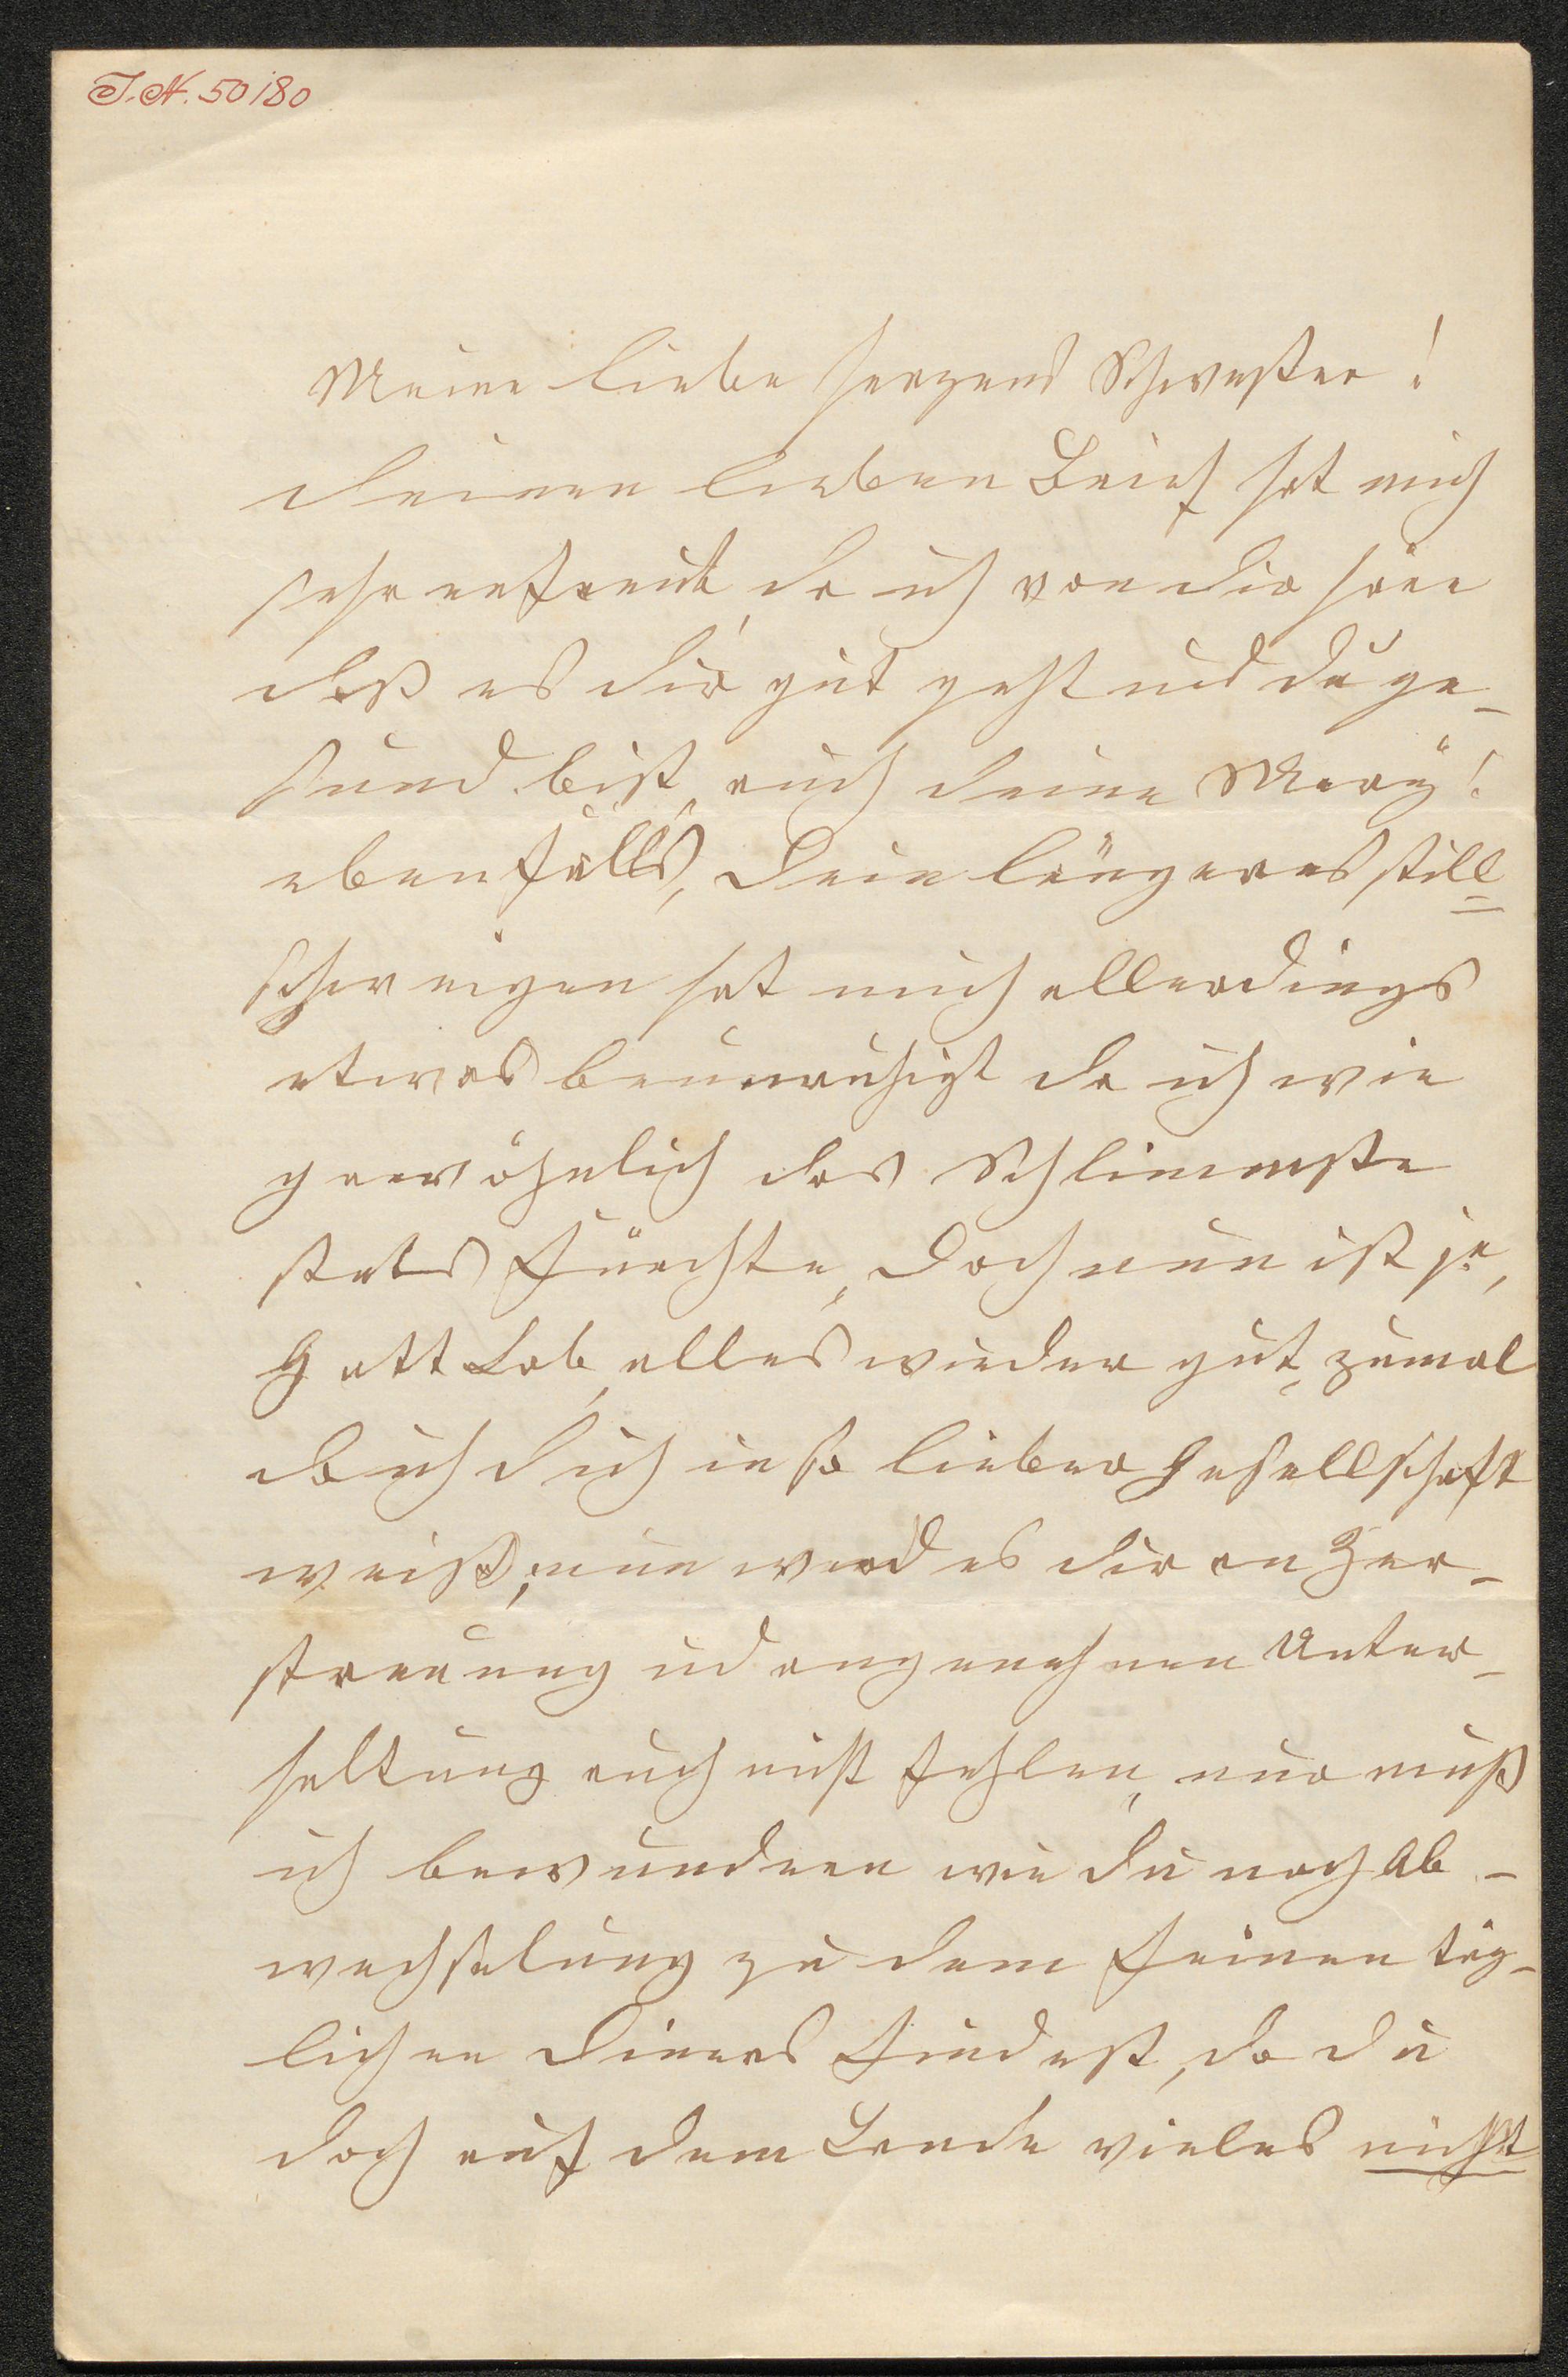 I.N. 50180
Meine liebe herzens Schwester!
deinen lieben Brief hat mich
sehr erfreut, da ich von dir höre
daß es dir gut geht und du ge-
sund bist, auch deine Mery!
ebenfalls, dein längeres still=
schweigen hat mich allerdings
etwas beunruhigt da ich wie
gewöhnlich das Schlimmste
stets fürchte, doch nun ist ja,
Gott Lob, alles wieder gut, zumal
da ich dich in so lieber Gesellschaft
weiß, nun wird es dir an Zer-
streuung und angenehmen Unter-
haltung auch nicht fehlen, nur muß
ich bewundern wie du noch Ab-
wechselung zu dem feinen täg-
lichen Diners findest, da du
doch auf dem Lande vieles nicht